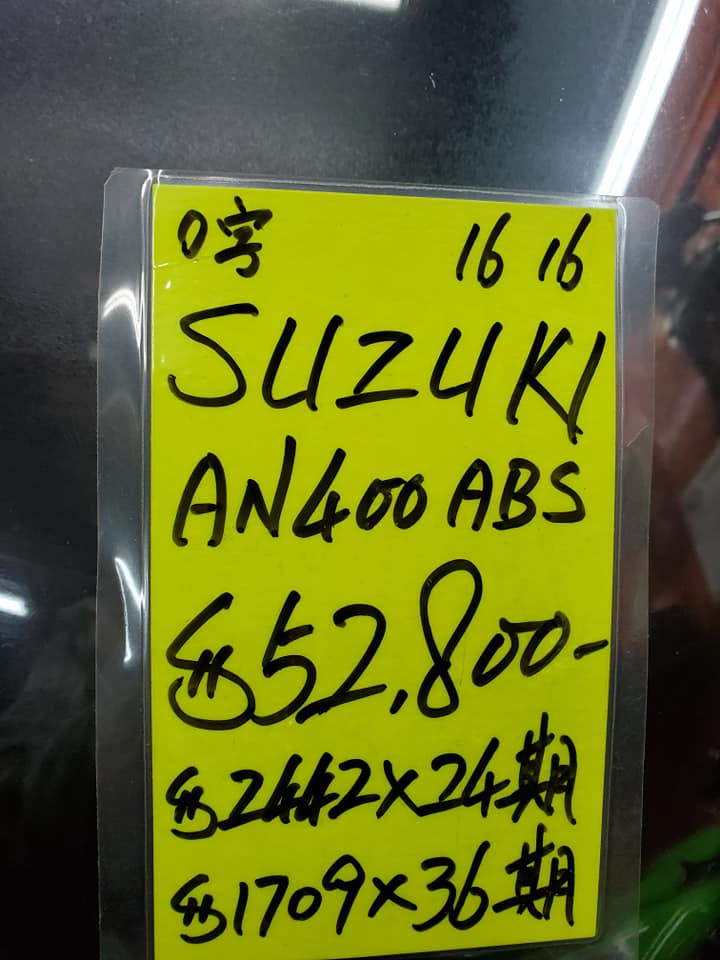 0字 16 16
SUZUKI
AN400 ABS
$52,800-
$2442×24期
$1709×36期